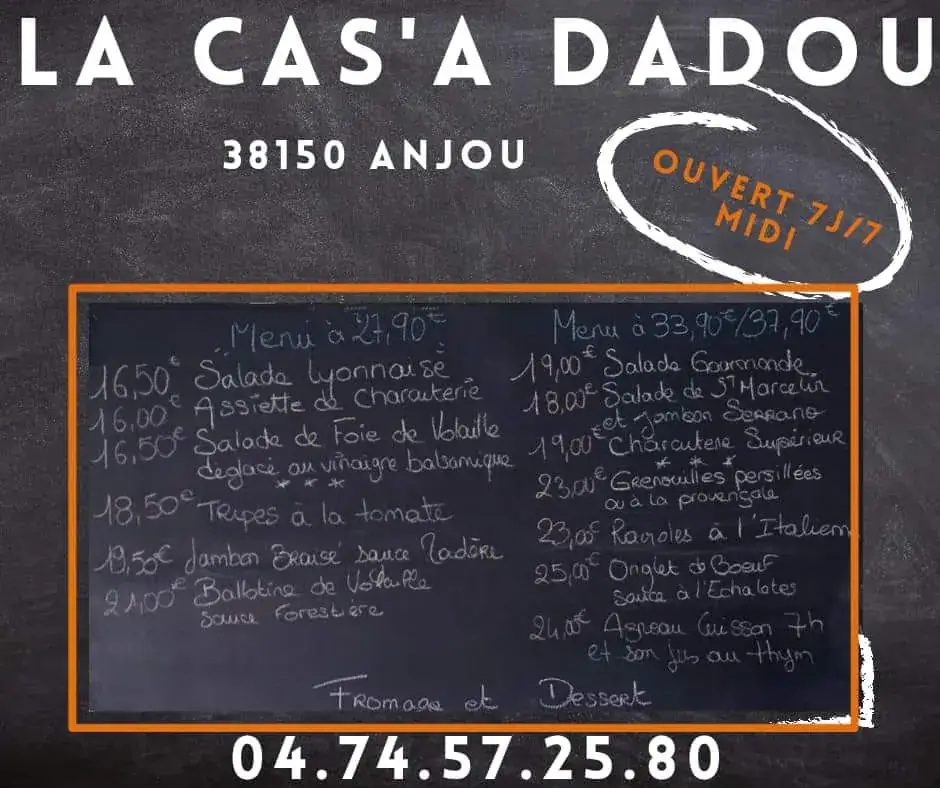 LA CAS'A DADOU
38150 ANJOU
OUVERT 7J/7
MIDI
Menu à 27,90€
16,50€ Salade Lyonnaise
16,00€ Assiette de Charcuterie
16,50€ Salade de Foie de Volaille
déglacé au vinaigre balsamique
* * *
18,50€ Tripes à la tomate
19,50€ Jambon Braisé sauce Madère
21,00€ Ballotine de Volaille
sauce Forestière
Menu à 33,90€/37,90€
19,00€ Salade Gourmande
18,00€ Salade de St Marcelin
et Jambon Serrano
19,00€ Charcuterie Supérieur
* * *
23,00€ Grenouilles persillées
ou à la provençale
23,00€ à l'Italienn
25,00€ Onglet de Boeuf
sauce à l'Echalotes
24,00€ Agneau Cuisson 7h
et son jus au thym
Fromage et Dessert
04.74.57.25.80